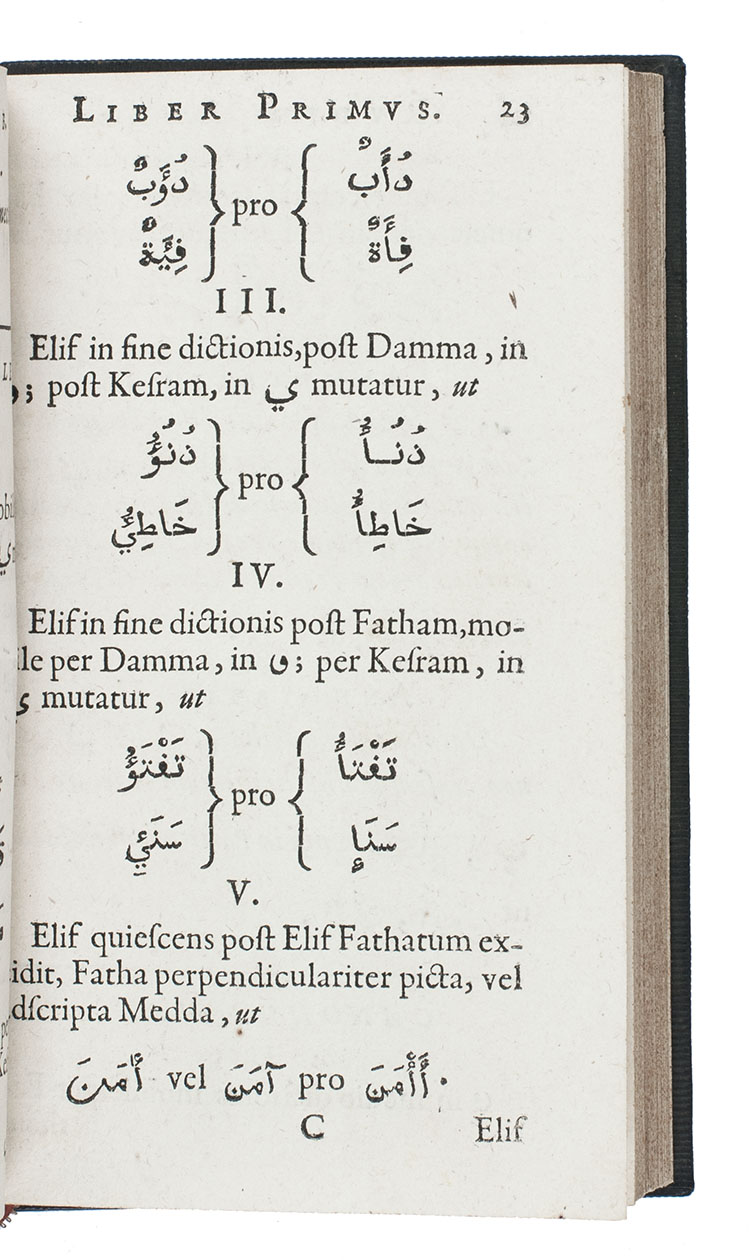 LIBER PRIMVS. 23
دُؤَبٌ } pro { دُأَبٌ
فِئَةٌ } pro { فِأَةٌ
III.
Elif in fine dictionis, poſt Damma, in
و; poſt Keſram, in ي mutatur, ut
دُنُؤُ } pro { دُنُأُ
خَاطِئُ } pro { خَاطِأُ
IV.
Elif in fine dictionis poſt Fatham, mo-
le per Damma, in و; per Keſram, in
ي mutatur, ut
تَفْتَؤُ } pro { تَفْتَأُ
سَنَئِ } pro { سَنَإِ
V.
Elif quieſcens poſt Elif Fathatum ex-
idit, Fatha perpendiculariter picta, vel
dſcripta Medda, ut
أٰمَنَ vel آمَنَ pro أَأْمَنَ.
C Elif